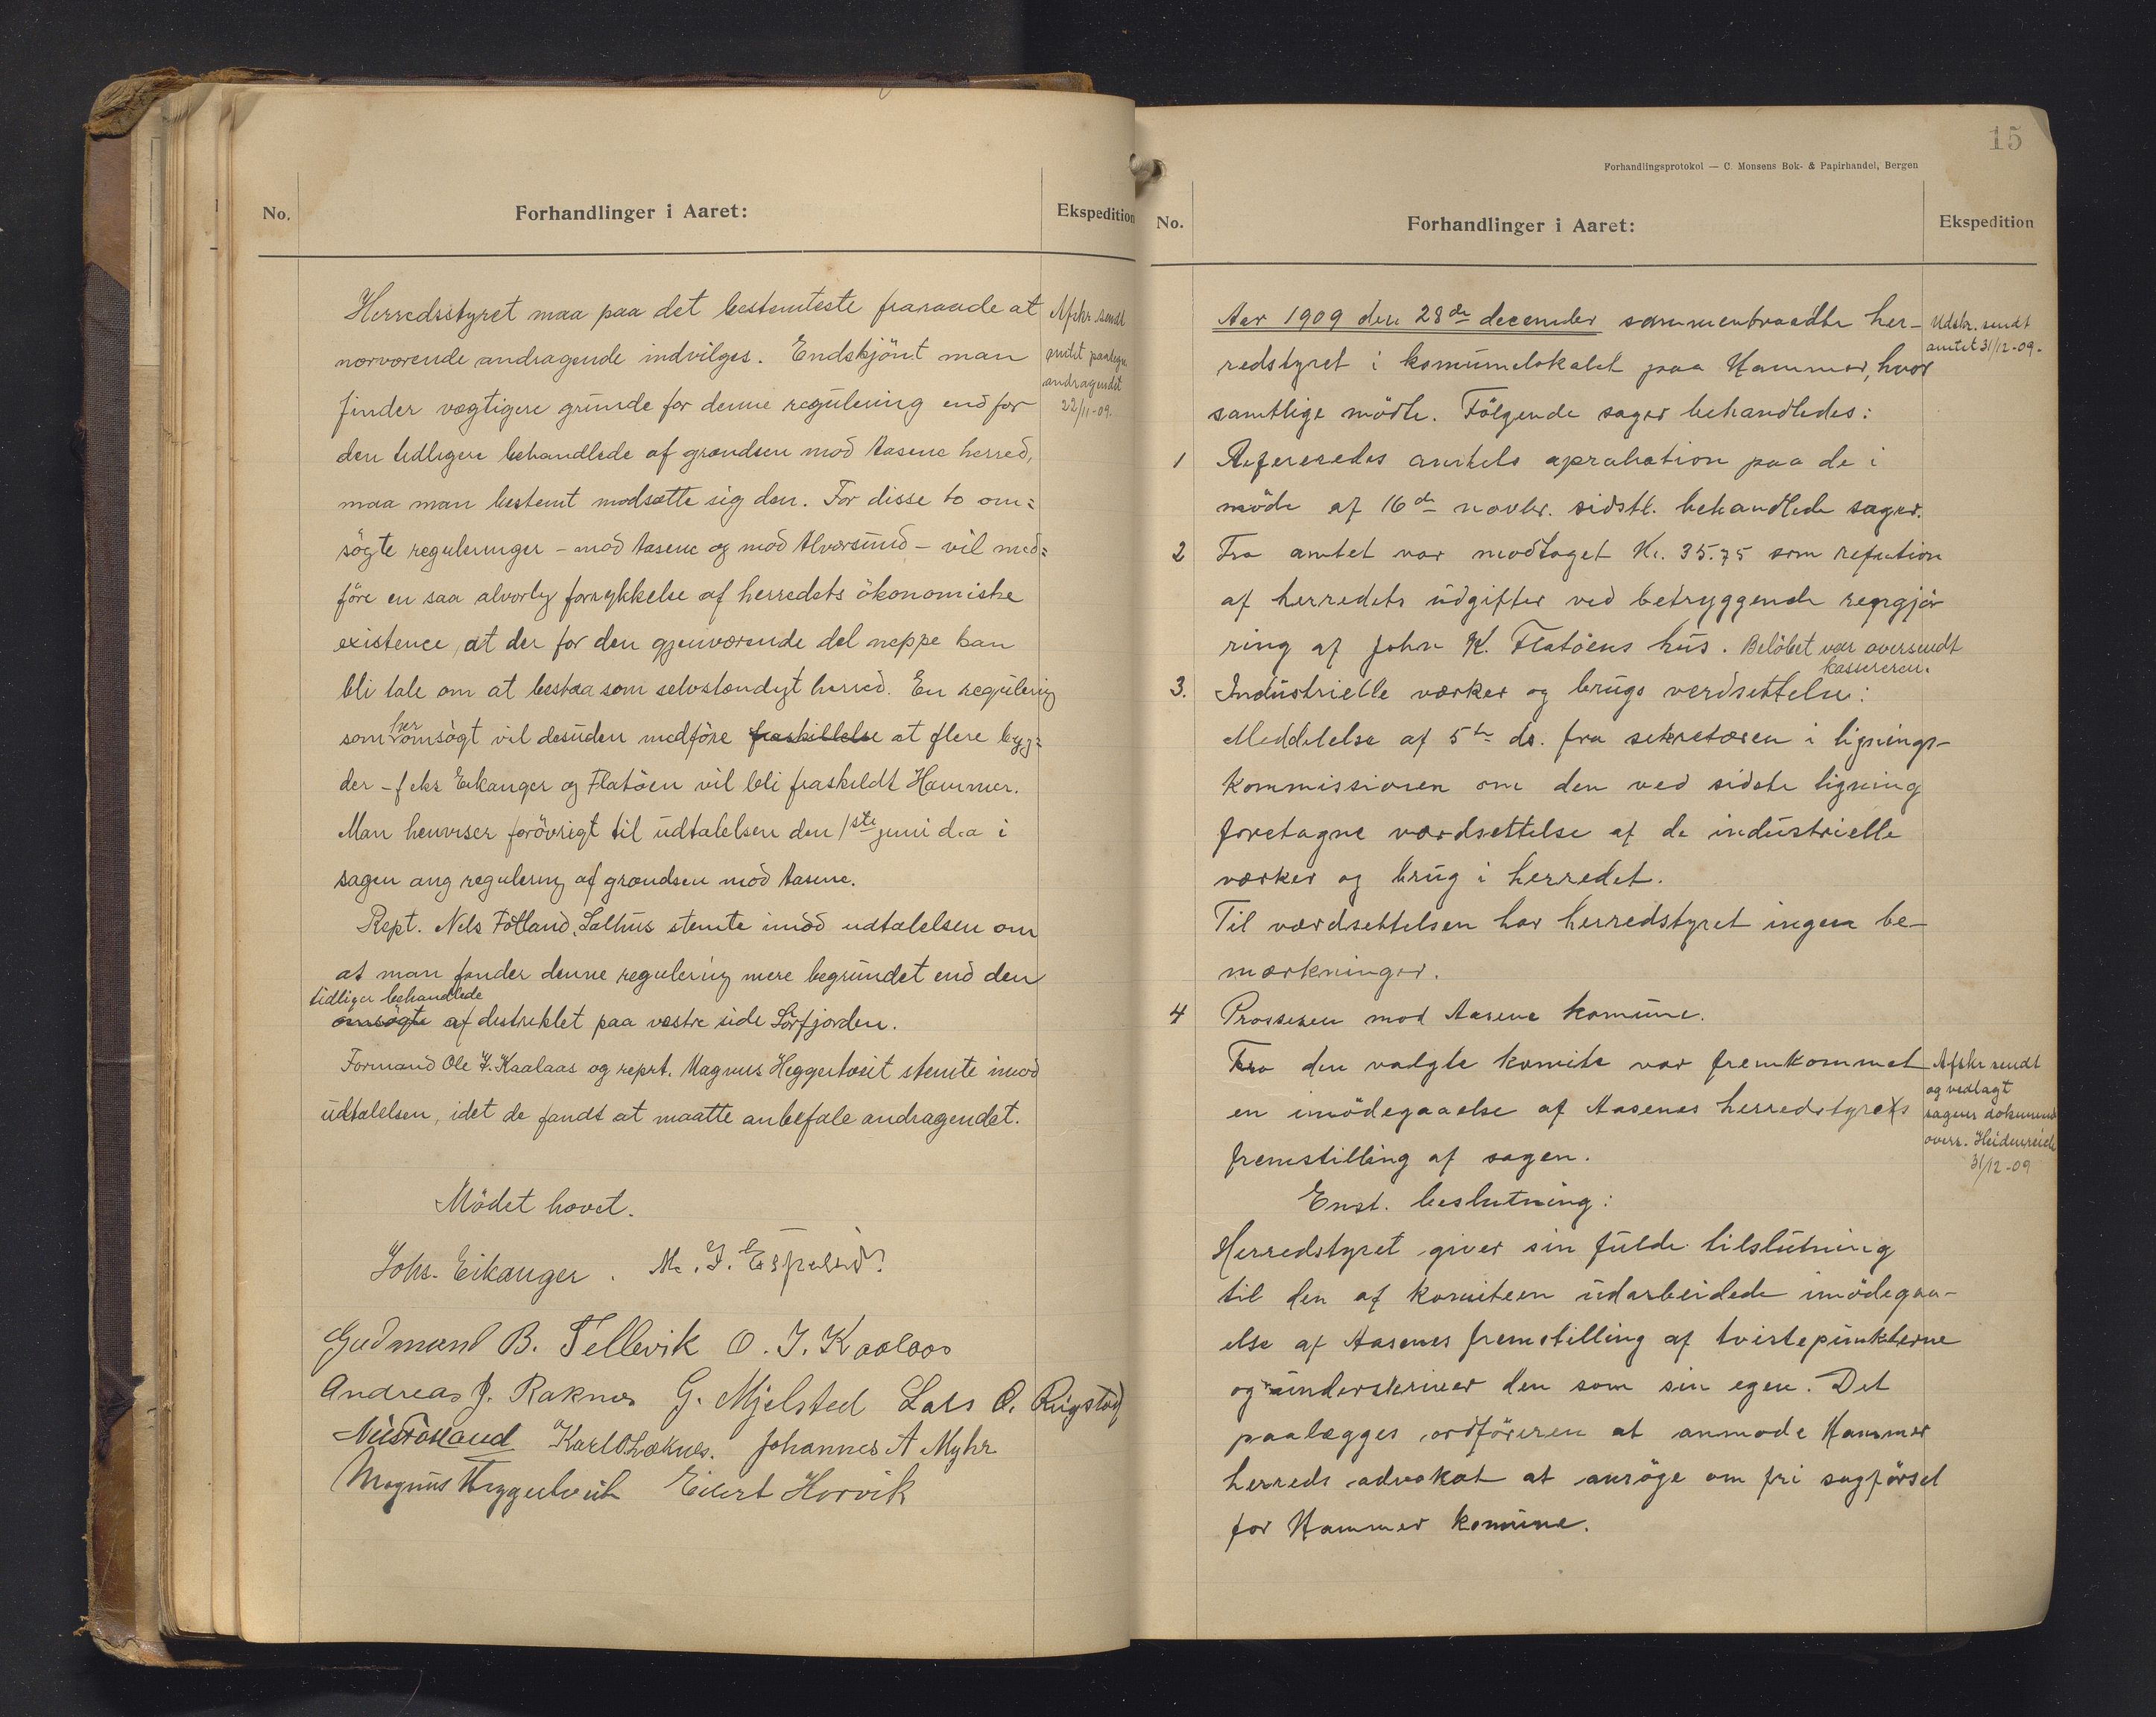 No.
Forhandlinger i Aaret:
Ekspedition
Herredsstyret maa paa det bestemteste fraraade at
nærværende andragende indvilges. Endskjönt man
finder vægtigere grunde for denne regulering end for
den tidligere behandlede af grændsen mod Aasene herred,
maa man bestemt modsætte sig den. For disse to om=
søgte reguleringer – mod Aasene og mod Alversund – vil med=
före en saa alvorlig forrykkelse af herredets ökonomiske
existence, at der for den gjenværende del neppe kan
bli tale om at bestaa som selvstændigt herred. En regulering
som her omsögt vil desuden medföre fraskillelse at flere byg=
der – f eks Eikanger og Flatöen vil bli fraskildt Hammer.
Man henviser forövrigt til udtalelsen den 1ste juni d.a i
sagen ang regulering af grændsen mod Aasene.
Rept. Nels Fotland, Salhus stemte imod udtalelsen om
at man finder denne regulering mere begrundet end den
tidliger behandlede
omsögte af distriktet paa vestre side Sörfjorden.
Formand Ole J. Kaalaas og reprt. Magnus Heggertveit stemte imod
udtalelsen, idet de fandt at maatte anbefale andragendet.
Afskr. sendt
amtet paategn
andragendet
22/11-09.
Mödet hævet.
Johs. Eikanger. M. J. Espelid.
Gudmund B. Tellevik O. J. Kaalaas
Andreas J. Raknes G. Mjelsted Lars O. Rigstad
Nils Fotland Karl O Læknes. Johannes A Myhr
Magnus Heggertveit Eilert Horvik
15
Forhandlingsprotokol — C. Monsens Bok- & Papirhandel, Bergen
No.
Forhandlinger i Aaret:
Ekspedition
Aar 1909 den 28de december sammentraadte her-
redstyret i komunelokalet paa Hammer, hvor
samtlige mödte. Fölgende sager behandledes:
Udskr. sendt
amtet 31/12-09.
1 Refereredes amtets aprobation paa de i
möde af 16de novbr. sidstl. behandlede sager.
2 Fra amtet var modtaget Kr. 35.75 som refution
af herredets udgifter ved betryggende rengjör
ring af John K. Flatöens hus. Belöbet var oversendt
kassereren.
3. Industrielle værker og brugs verdsettelse:
Meddelelse af 5te ds. fra sekretæren i lignings-
kommissionen om den ved sidste ligning
foretagne værdsettelse af de industrielle
værker og brug i herredet.
Til værdsettelsen har herredstyret ingen be-
mærkninger.
4 Prossesen mod Aasene komune.
Fra den valgte komite var fremkommet
en imödegaaelse af Aasenes herredstyrets
fremstilling af sagen.
Afskr sendt
og vedlagt
sagens dokument
overr. Heidenreich
31/12-09
Enst. beslutning:
Herredstyret giver sin fulde tilslutning
til den af komiteen udarbeidede imödegaa-
else af Aasenes fremstilling af tvistepunkterne
og underskriver den som sin egen. Det
paalægges ordföreren at anmode Hammer
herreds advokat at ansöge om fri sagförsel
for Hammer komune.